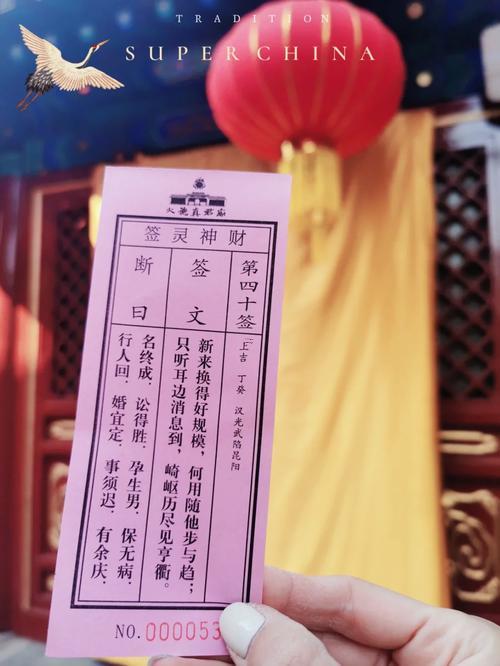 TRADITION
SUPER CHINA
火德真君庙
财神灵签
第四十签
上吉 丁癸 汉光武陷昆阳
签文
新来换得好规模，何用随他步与趋；
只听耳边消息到，崎岖历尽见亨衢。
断曰
名终成，讼得胜，孕生男，保无病，
行人回，婚宜定，事须迟，有余庆，
NO. 000053